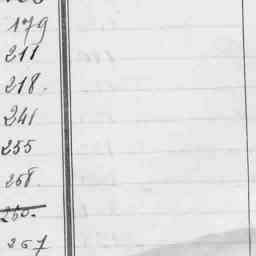 179
211
218.
241
255
258.
260.
267